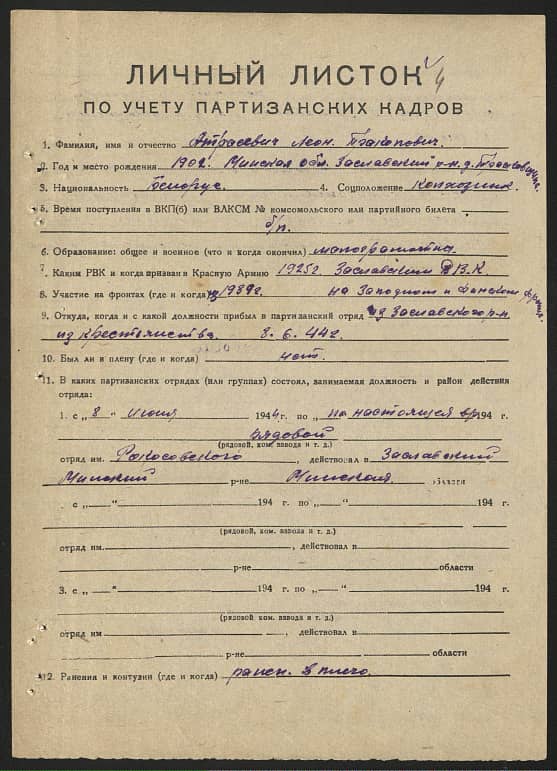 ЛИЧНЫЙ ЛИСТОК
4
ПО УЧЕТУ ПАРТИЗАНСКИХ КАДРОВ
1. Фамилия, имя и отчество Атрасевич Леон
2. Год и место рождения 1902. Минская обл. Заславский р-н. д.
3. Национальность Белорус. 4. Соцположение Колхозник.
5. Время поступления в ВКП(б) или ВЛКСМ № комсомольского или партийного билета
б/п.
6. Образование: общее и военное (что и когда окончил) малограмотна
7. Каким РВК и когда призван в Красную Армию 1925г. Заславским РВ.К.
8. Участие на фронтах (где и когда) 1939г. на Западном и Финском
9. Откуда, когда и с какой должности прибыл в партизанский отряд из Заславского р-н.
из крестьянства. 8. 6. 44г.
10. Был ли в плену (где и когда) нет.
11. В каких партизанских отрядах (или группах) состоял, занимаемая должность и район действия
отряда:
1. с „8“ июня 1944 г. по „на настоящея вр 194 г.
рядовой
(рядовой, ком. взвода и т. д.)
отряд им. Рокосовского, действовал в Заславский
Минский р-не Минская области
. с „ “ 194 г. по „ “ 194 г.
(рядовой, ком. взвода и т. д.)
отряд им. , действовал в
р-не области
3. с „ “ 194 г. по „ “ 194 г.
(рядовой, ком. взвода и т. д.)
отряд им , действовал в
р-не области
12. Ранения и контузии (где и когда) ранен. в плечо.